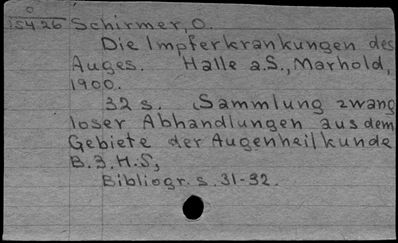 O
154.26 Schirmer, O.
Die Impferkrankungen des
Auges. Halle a.S., Marhold,
1900.
32 s. Sammlung zwang
loser Abhandlungen aus dem
Gebiete der Augenheilkunde
B.3.H.5,
Bibliogr. s. 31-32.